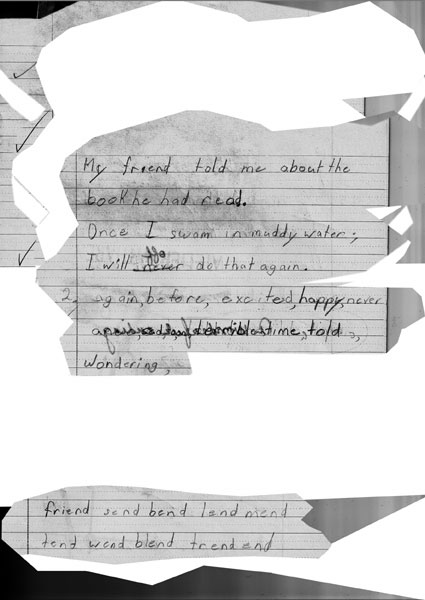 My friend told me about the
book he had read.
Once I swam in muddy water;
I will never do that again.
2, again, before, excited, happy, never
terrible time, told,
wondering,
friend send bend lend mend
tend wend blend trend end